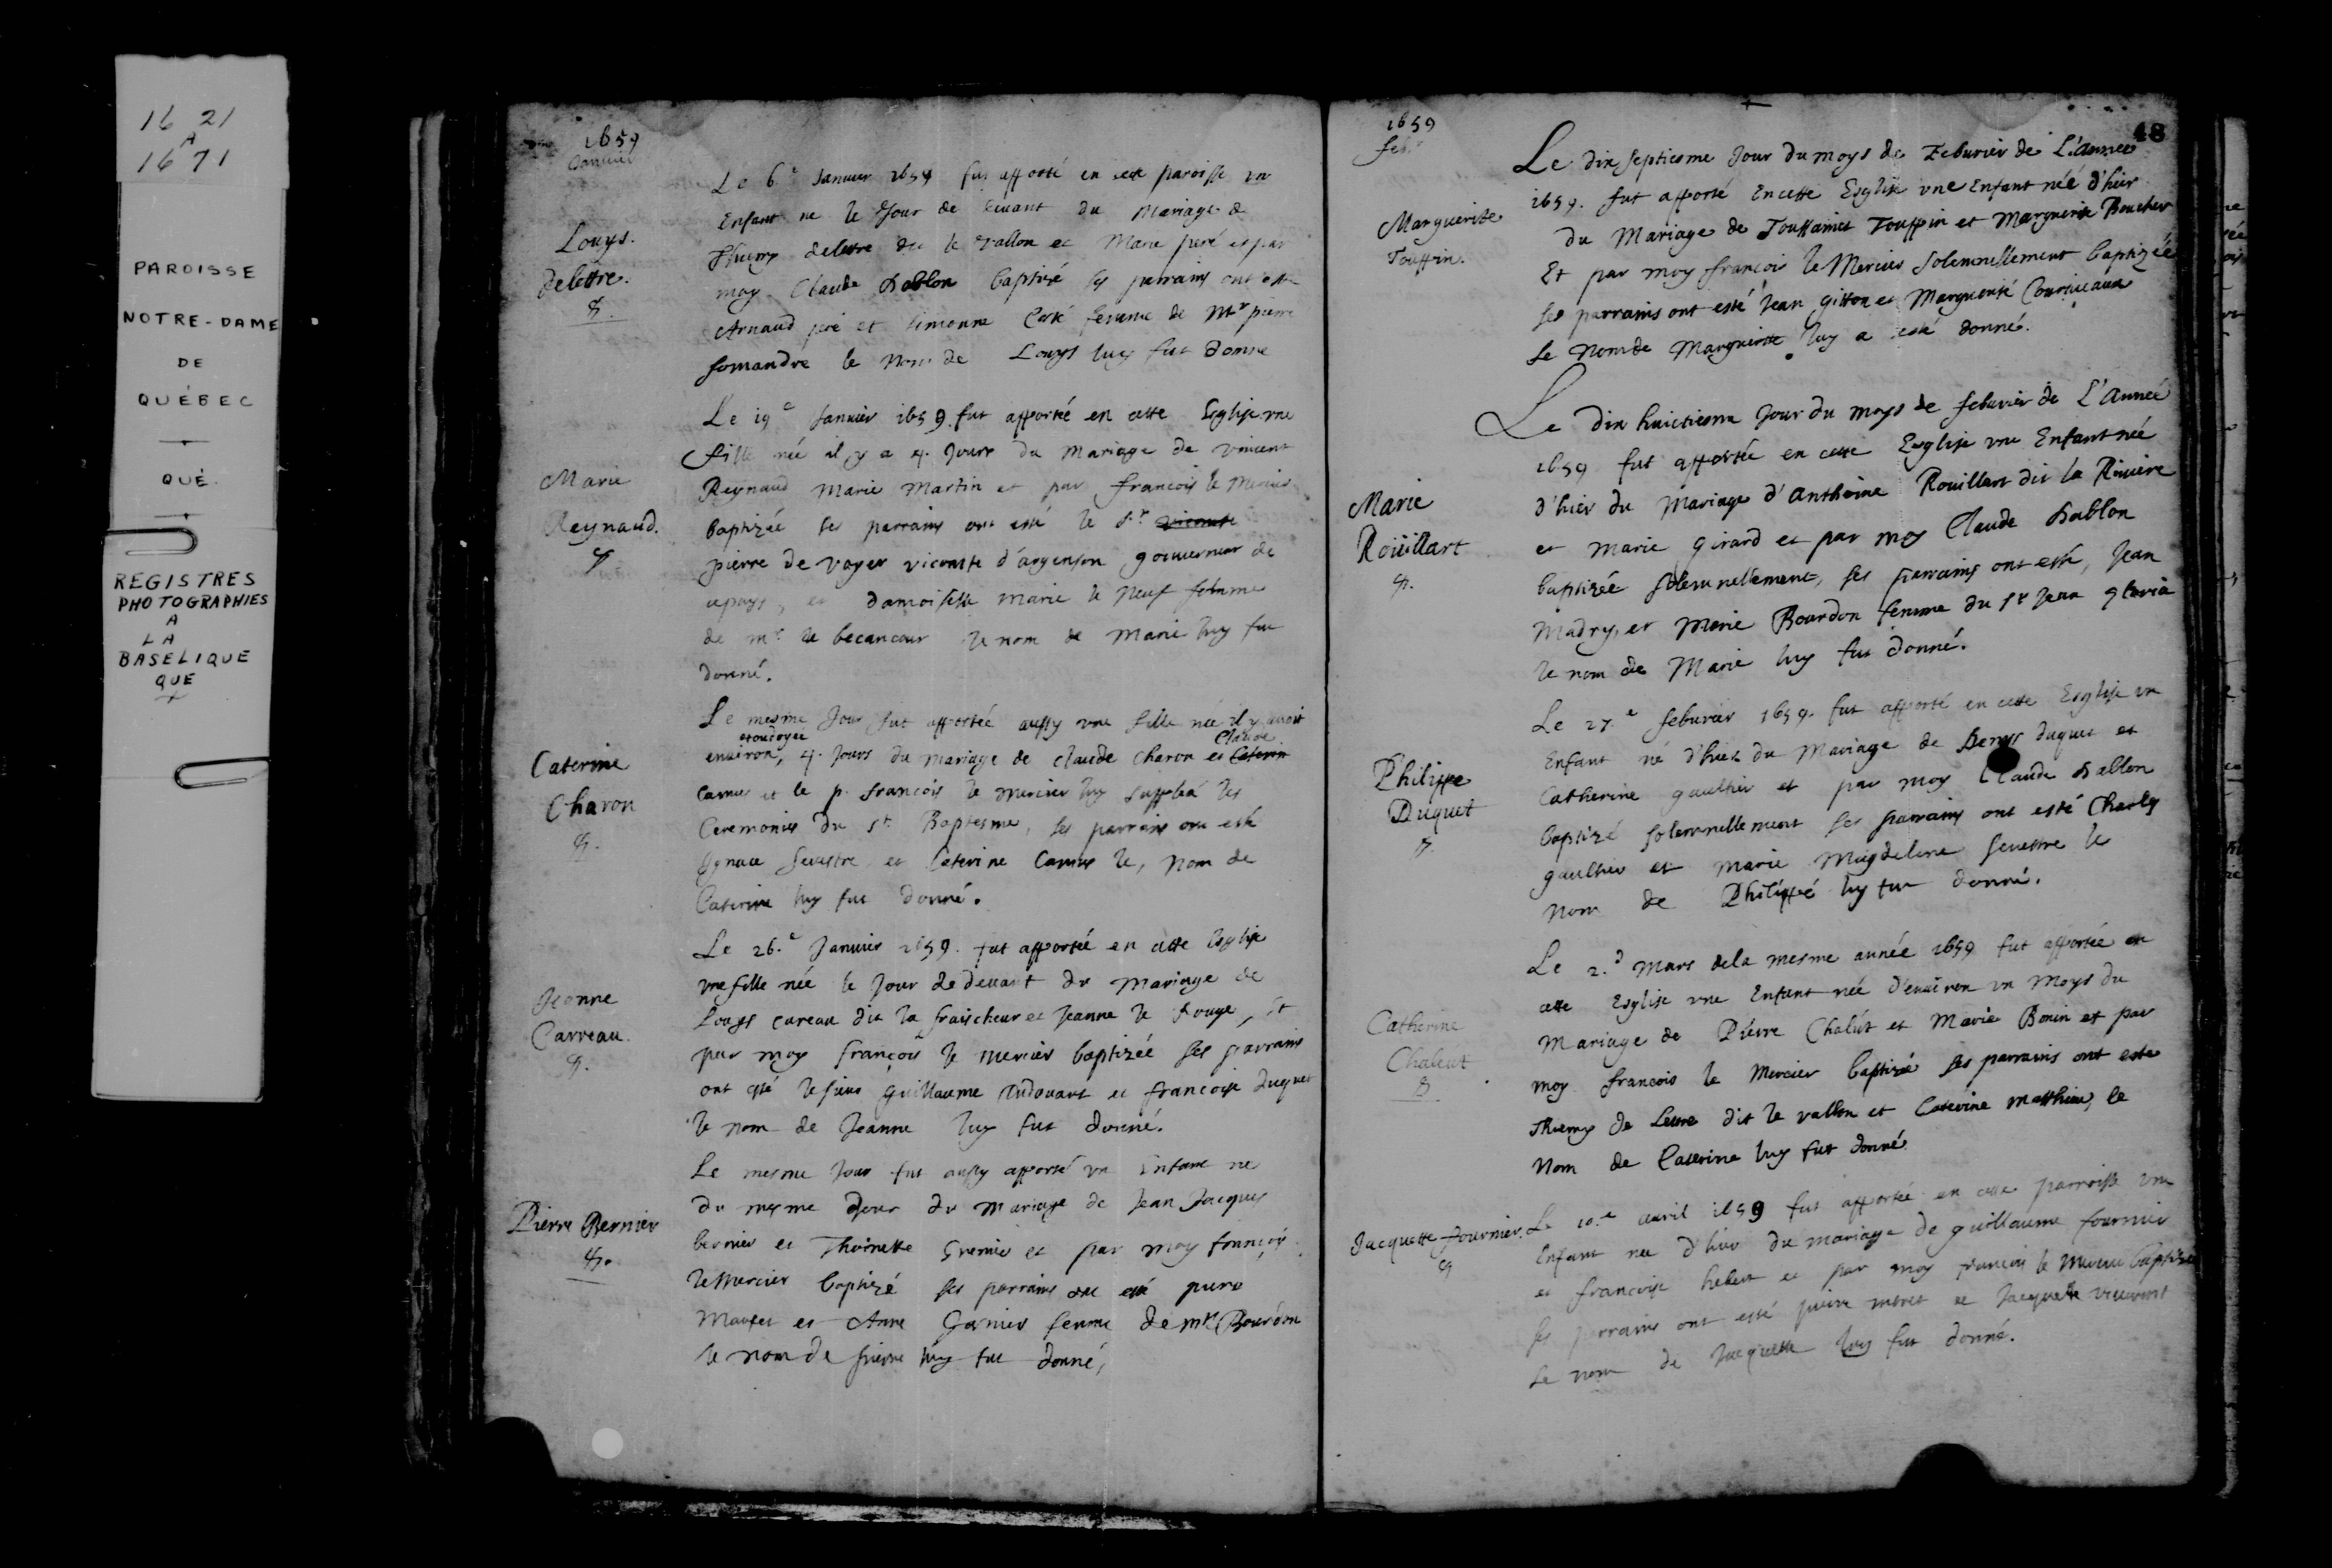 16 21
A
16 71
PAROISSE
NOTRE-DAME
DE
QUÉBEC
QUÉ.
REGISTRES
PHOTOGRAPHIES
A
LA
BASELIQUE
QUE
1659
Janvier
Louys.
delettre.
Le 6e Janvier 1659 fut apporté en cette paroisse vn
Enfant ne le Jour de devant du Mariage de
Thierry delettre dit le vallon et Marie peré et par
moy Claude Dablon baptisé ses parrains ont esté
Arnaud peré et Simonne Costé femme de Mr pierre
le Nom de Louys luy fut donne
Marie
Reynaud.
Le 19e Janvier 1659. fut apportée en cette Esglise vne
fille née il y a 4. Jours du Mariage de vincent
Reynaud Marie Martin et par francois le Mercier
baptizée ses parrains ont esté le Sr. vicomte
pierre de voyer vicomte d'argenson gouverneur de
cepays, et damoiselle Marie le Neuf femme
de mr. de becancour le nom de Marie luy fut
donné.
Caterine
Charon
Le mesme Jour fut apportée aussy vne fille née il y avoit
etondoyee Claude
environ, 4. Jours du mariage de claude Charon et Caterin
Camus et le p. francois le mercier luy supplea les
Ceremonies du st. Baptesme, ses parrains ont esté
Ignace Sevestre et Caterine Camus le, nom de
Caterine luy fut donné.
Jeanne
Carreau.
Le 26.e Janvier 1659. fut apportée en cette Esglise
vne fille née le Jour de devant du mariage de
Louys careau dit la fraischeur et Jeanne le Rouge, et
par moy francois le mercier baptizée ses parrains
ont esté le sieur Guillaume Audouart et francoise duquet
le nom de Jeanne luy fut donné.
Pierre Bernier
Le mesme Jour fut aussy apporté vn Enfant ne
du mesme Jour du Mariage de Jean Jacques
bernier et Thoinette Grenier et par moy francois
le Mercier baptizé ses parrains ont esté pierre
Maufet et Anne Gasnier femme de Mr. Bourdon
le nom de pierre luy fut donné,
1659
feb.
48
Marguerite
Touppin.
Le dix septiesme Jour du moys de Feburier de L'année
1659. fut apporté En cette Esglise vne Enfant née d'hier
du Mariage de Toussainct Touppin et Marguerite Boucher
Et par moy francois le Mercier solemnellement baptizée
ses parrains ont esté Jean gitton et Marguerite Couruieaux
le Nom de Marguerite luy a esté donné.
Marie
Roüillart
Le dix huictiesme Jour du moys de feburier de L'Année
1659 fut apportée en cette Esglise vne Enfant née
d'hier du Mariage d'Anthoine Rouillart dit la Riuiere
et Marie Girard et par moy Claude Dablon
baptizée solemnellement, ses parrains ont esté, Jean
Madry, et Marie Bourdon femme du sr Jean gloria
le nom de Marie luy fut donné.
Philippe
Duquet
Le 27.e feburier 1659. fut apporté en cette Esglise vn
Enfant né d'hier du Mariage de Denys duquet et
Catherine gaultier et par moy Claude dablon
baptizé solemnellement ses parrains ont esté Charles
gaultier et Marie Magdelene Sevestre le
nom de Philippé luy fut donné.
Catherine
Chaleut
Le 2.d Mars de la mesme année 1659 fut apportée en
cette Esglise vne Enfant née d'environ vn Moys du
Mariage de Pierre Chalut et Marie Bonin et par
moy francois le Mercier baptizé ses parrains ont este
Thierry de Lettre dit le vallon et Caterine Matthieu, le
Nom de Caterine luy fut donné.
Jacquette fournier.
Le 10.e avril 1659 fut apportée en cette parroisse vne
Enfant née d'hier du mariage de guillaume fournier
et francoise hebert et par moy francois le Mercier baptizée
ses parrains ont esté et Jacquette
Le nom de Jacquette luy fut donné.